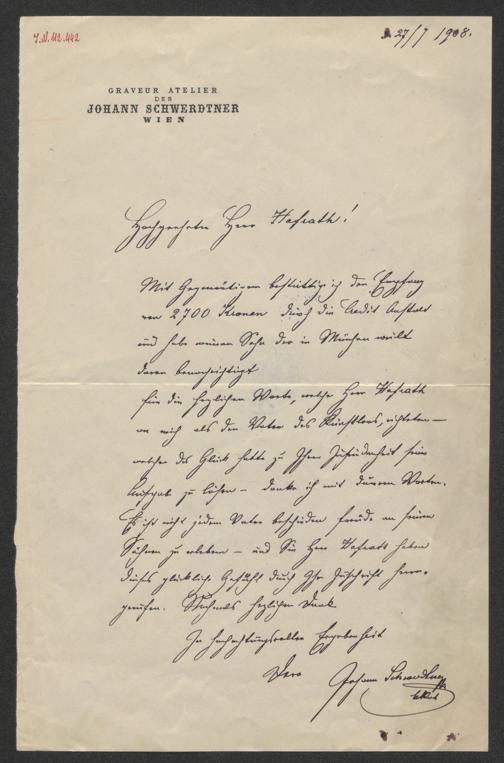 J.N. 112.442
27/7 1908.
GRAVEUR ATELIER
DES
JOHANN SCHWERDTNER
WIEN
Hochgeehrter Herr Hofrath!
Mit Gegenwärtigem bestättige ich den Empfang
von 2700 Kronen durch die Credit Anstalt
und habe meinen Sohn der in München weilt
davon benachrichtigt
Für die herzlichen Worte, welche Herr Hofrath
an mich als den Vater des Künstlers, richteten –
welcher das Glück hatte zu Ihrer Zufriedenheit seine
Aufgabe zu lösen – danke ich mit Worten.
Es ist nicht jedem Vater beschieden Freude an seinen
Söhnen zu erleben – und Sie Herr Hofrath haben
dieses glückliche Gefühl durch Ihre Zuschrift hervor-
gerufen. Nochmals herzlichen Dank
In hochachtungsvoller Ergebenheit
Dero Johann Schwerdtner